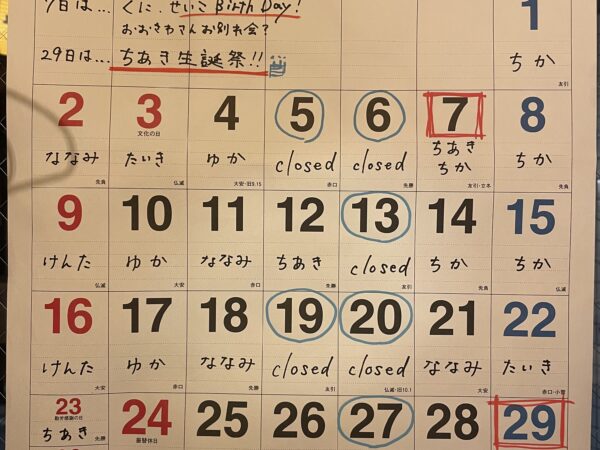 7日は... くに、せいこ Birth Day!
おおきわさんお別れ会?
29日は... ちあき生誕祭!!
1
ちか
友引
2 3 4 5 6 7 8
文化の日
ななみ たいき ゆか closed closed ちあき ちか
ちか
先負 仏滅 大安・旧9.15 赤口 先勝 友引・立冬 先負
9 10 11 12 13 14 15
けんた ゆか ななみ ちあき closed ちか ちか
仏滅 大安 赤口 先勝 友引 先負 仏滅
16 17 18 19 20 21 22
けんた ゆか ななみ closed closed ななみ たいき
大安 赤口 先勝 友引 仏滅・旧10.1 大安 赤口・小雪
23 24 25 26 27 28 29
勤労感謝の日 振替休日
ちあき
先勝